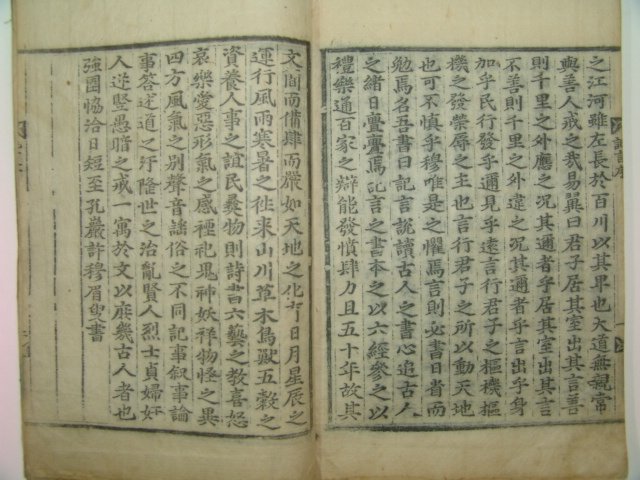 記言序
之江河雖左長於百川以其卑也大道無親常
與善人戒之哉易翼曰君子居其室出其言善
則千里之外應之況其邇者乎居其室出其言
不善則千里之外違之況其邇者乎言出乎身
加乎民行發乎邇見乎遠言行君子之樞機樞
機之發榮辱之主也言行君子之所以動天地
也可不慎乎穆唯是之懼焉言則必書日省而
勉焉名吾書曰記言說讀古人之書心追古人
之緒日亹亹焉記言之書本之以六經參之以
禮樂通百家之辯能發憤肆力且五十年故其
文簡而備肆而嚴如天地之化育日月星辰之
運行風雨寒暑之往來山川草木鳥獸五穀之
資養人事之誼民彝物則詩書六藝之教喜怒
哀樂愛惡形氣之感禋祀鬼神妖祥物怪之異
四方風氣之別聲音謠俗之不同記事叙事論
事答述道之汙隆世之治亂賢人烈士貞婦奸
人逆竪愚暗之戒一寓於文以庶幾古人者也
強圉協洽日短至孔巖許穆眉叟書